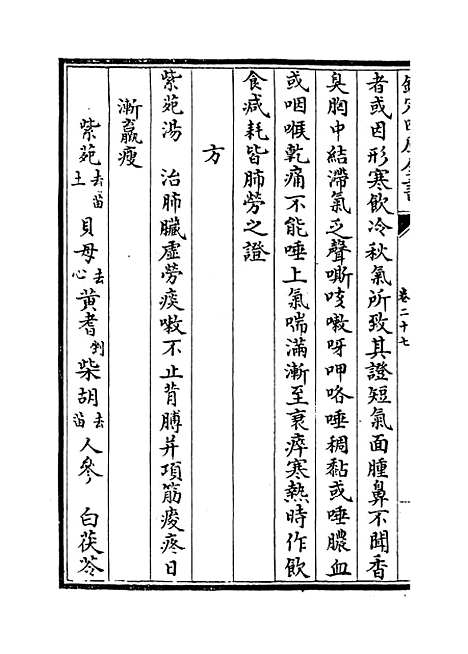 欽定四庫全書
卷二十七
者或因形寒飲冷秋氣所致其證短氣面腫鼻不聞香
臭胸中結滯氣乏聲嘶咳嗽呀呷咯唾稠黏或唾膿血
或咽喉乾痛不能唾上氣喘滿漸至衰瘁寒熱時作飲
食減耗皆肺勞之證
方
紫苑湯　治肺臟虛勞痰嗽不止背膊并項筋痠疼日
漸羸瘦
紫苑去苗土　貝母去心　黃耆剉　柴胡去苗　人參　白茯苓